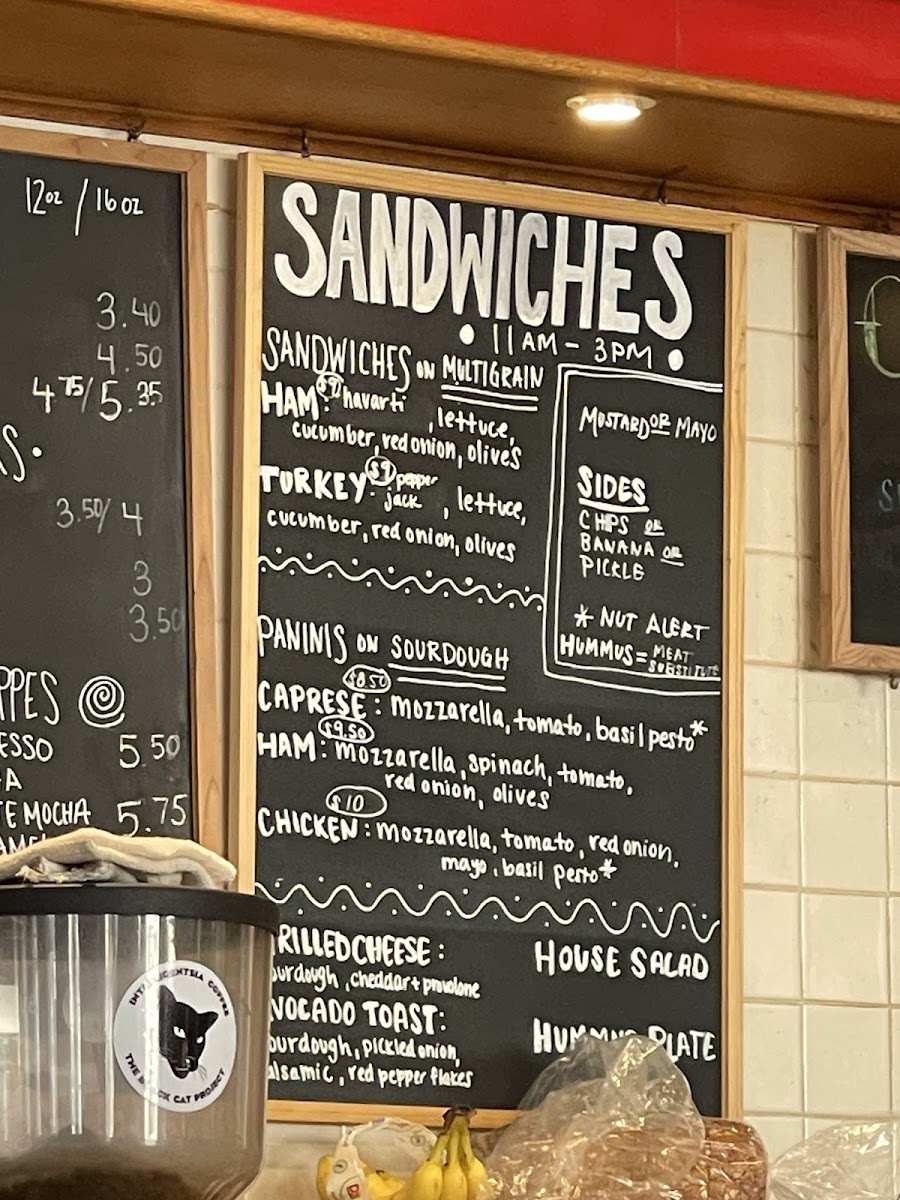 12oz / 16oz
3.40
4.50
4.75/5.35
3.50/4
3
3.50
5.50
TE MOCHA 5.75
SANDWICHES
• 11AM - 3PM •
SANDWICHES ON MULTIGRAIN
HAM: $9 havarti, lettuce,
cucumber, red onion, olives
TURKEY: $9 pepper jack, lettuce,
cucumber, red onion, olives
MUSTARD OR MAYO
SIDES
CHIPS OR
BANANA OR
PICKLE
* NUT ALERT
HUMMUS = MEAT
SUBSTITUTE
PANINIS ON SOURDOUGH
$8.50
CAPRESE: mozzarella, tomato, basil pesto*
$9.50
HAM: mozzarella, spinach, tomato,
red onion, olives
$10
CHICKEN: mozzarella, tomato, red onion,
mayo, basil pesto*
RILLED CHEESE:
ourdough, cheddar + provolone
VOCADO TOAST:
ourdough, pickled onion,
alsamic, red pepper flakes
HOUSE SALAD
HUMMUS PLATE
INTELLIGENTSIA COFFEE
THE BLACK CAT PROJECT